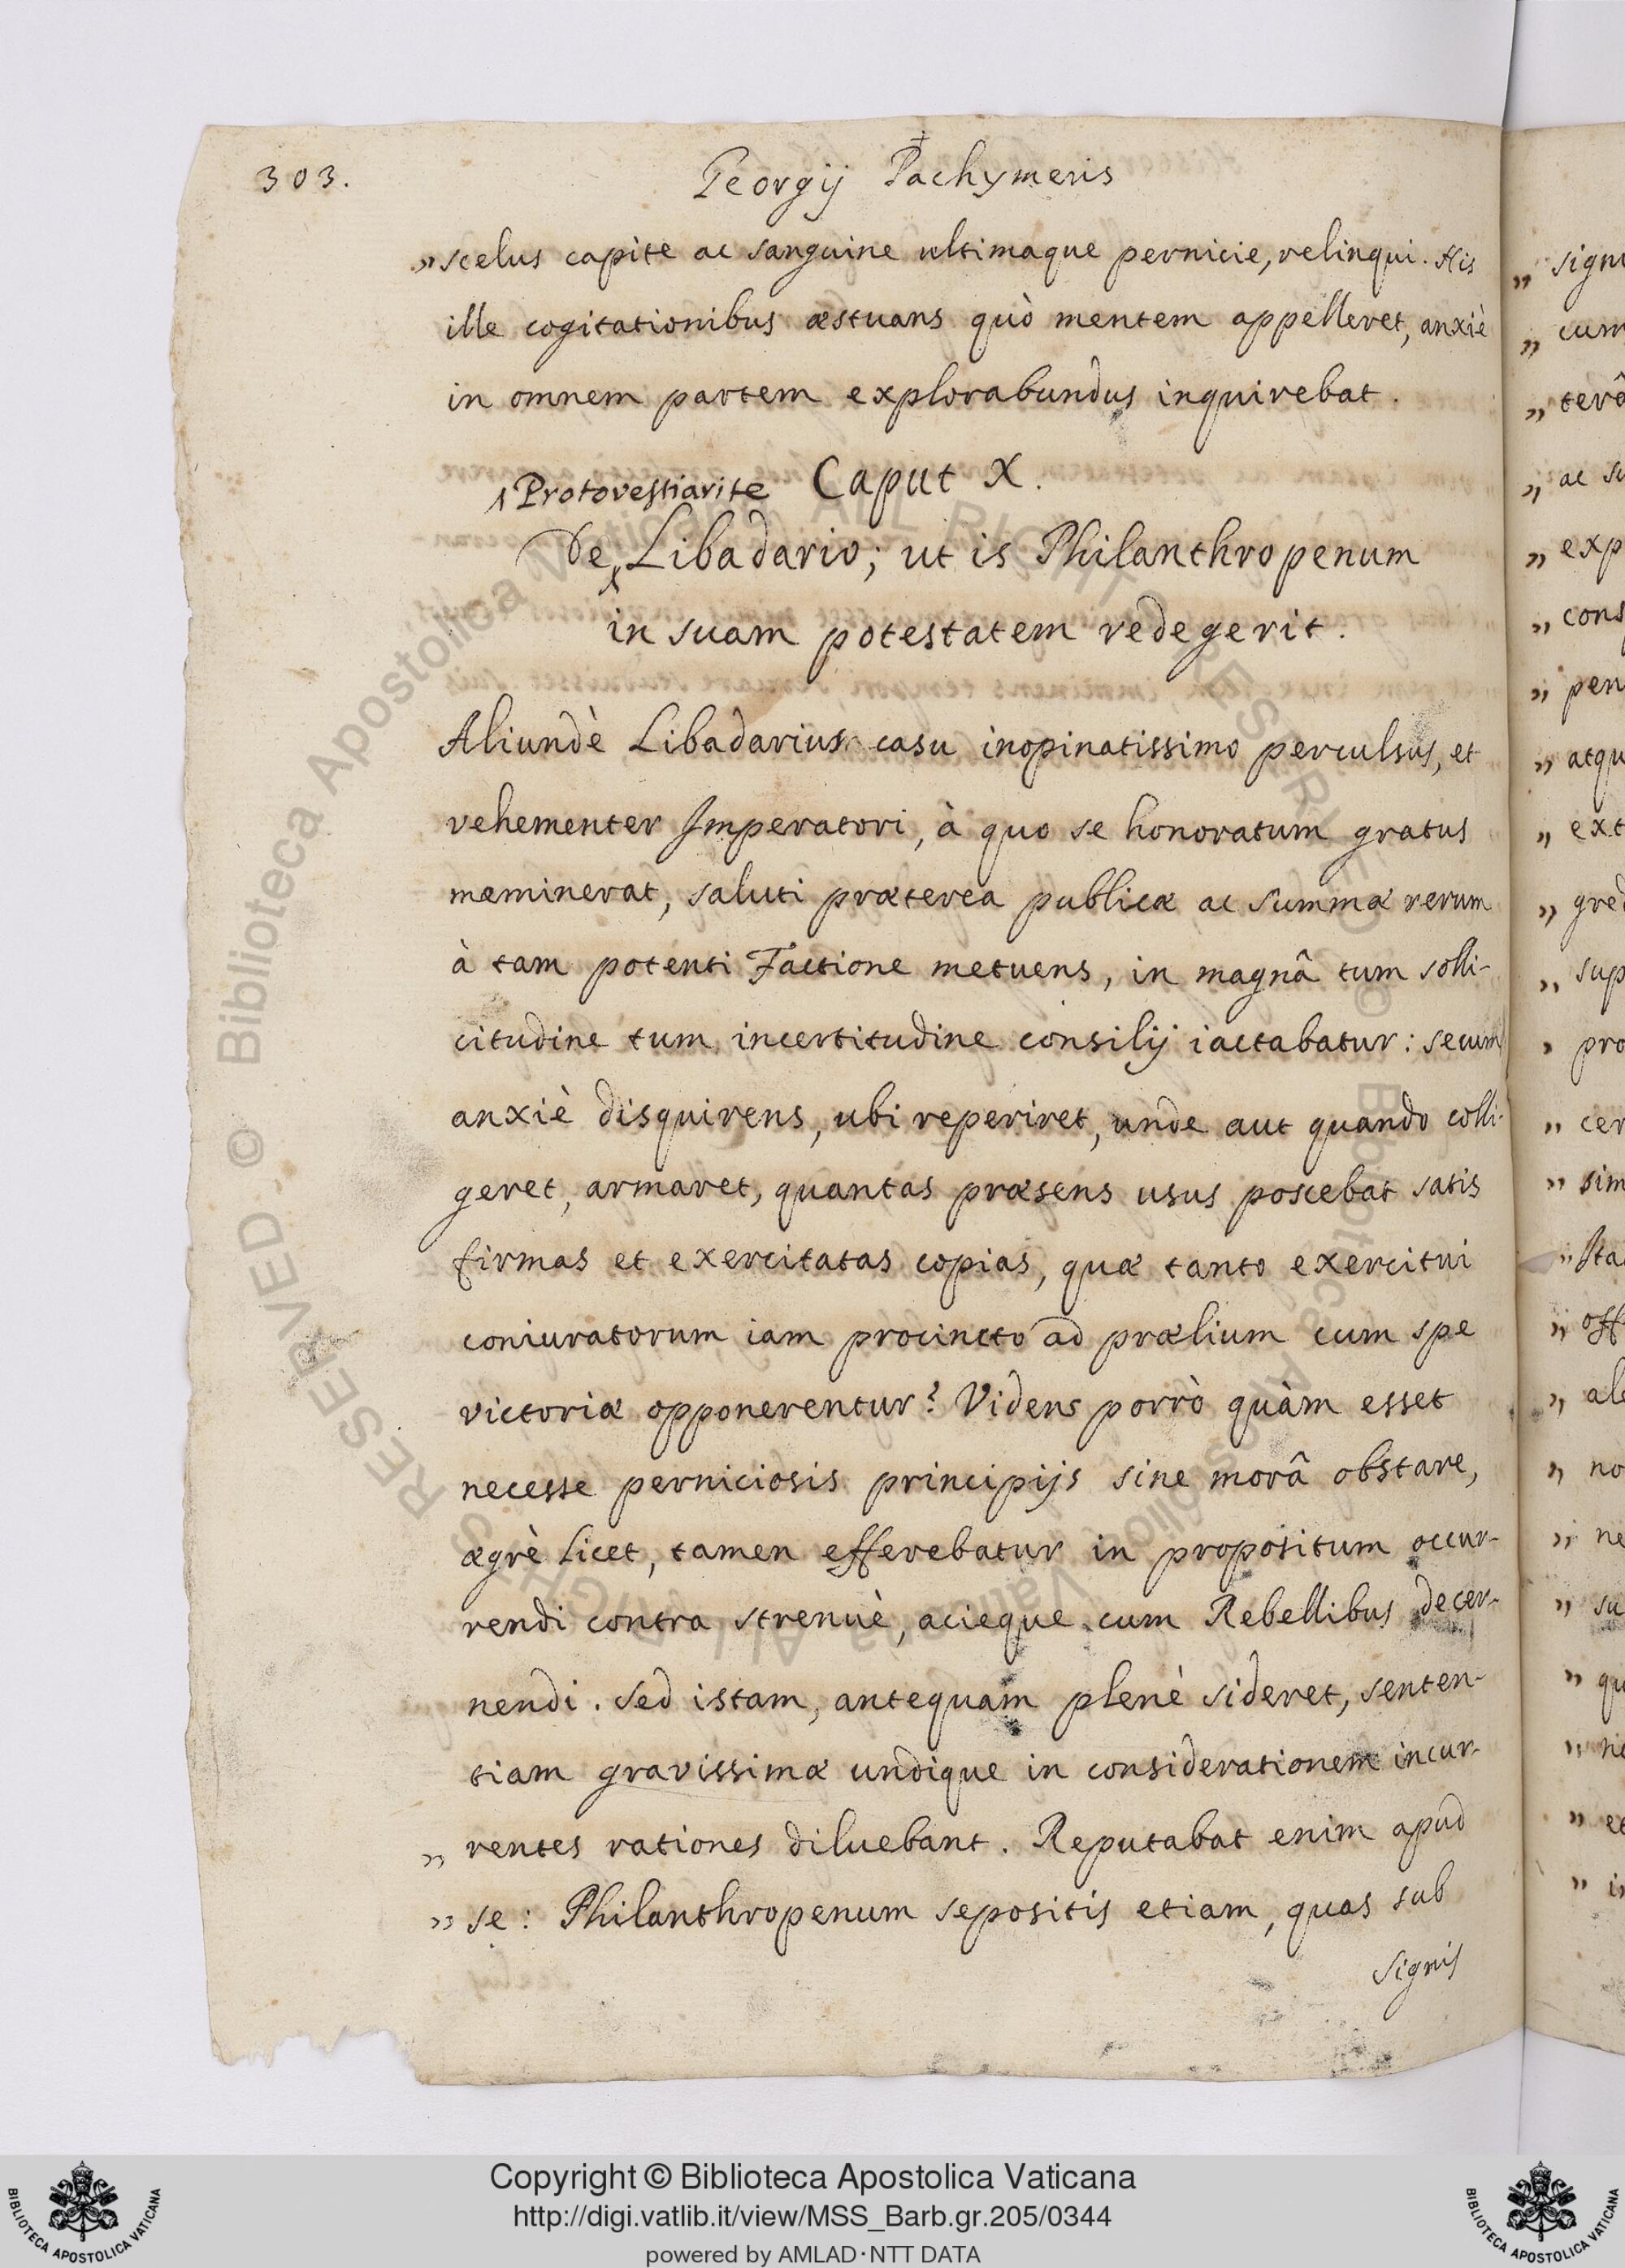 303.
Georgij Pachymeris
„ scelus capite ac sanguine ultimaque pernicie, relinqui. His
ille cogitationibus æstuans quò mentem appelleret, anxiè
in omnem partem explorabundus inquirebat.
Caput X.
Protovestiarite
De Libadario; ut is Philanthropenum
in suam potestatem redegerit.
Aliundè Libadarius casu inopinatissimo perculsus, et
vehementer Imperatori, à quo se honoratum gratus
meminerat, saluti præterea publicæ ac summæ rerum
à tam potenti Factione metuens, in magnâ tum solli-
citudine tum incertitudine consilij iactabatur: secum
anxiè disquirens, ubi reperiret, unde aut quando colli-
geret, armaret, quantas præsens usus poscebat satis
firmas et exercitatas copias, quæ tanto exercitui
coniuratorum iam procincto ad prælium cum spe
victoriæ opponerentur? Videns porrò quàm esset
necesse perniciosis principijs sine morâ obstare,
ægrè licet, tamen efferebatur in propositum occur-
rendi contra strenuè, acieque cum Rebellibus decer-
nendi. Sed istam, antequam plenè sideret, senten-
tiam gravissimæ undique in considerationem incur-
„ rentes rationes diluebant. Reputabat enim apud
„ se: Philanthropenum sepositis etiam, quas sub
signis
„ cum
„ ac
„ exp
„ cons
„ pen
„ atqu
„ ext
„ sup
„ pro
„ cer
„ sim
„ off
„ no
„ ne
„ su
„ qu
„ et
Copyright © Biblioteca Apostolica Vaticana
http://digi.vatlib.it/view/MSS_Barb.gr.205/0344
powered by AMLAD·NTT DATA
BIBLIOTECA APOSTOLICA VATICANA
BIBLIOTECA APOSTOLICA VATICANA
© Biblioteca Apostolica Vaticana ALL RIGHTS RESERVED © Biblioteca Apostolica Vaticana ALL RIGHTS RESERVED